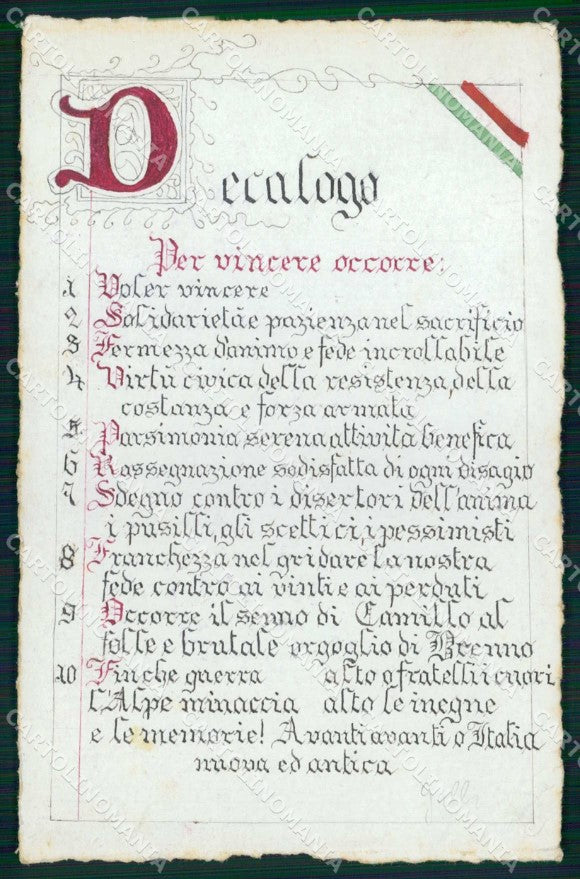 Decalogo
Per vincere occorre:
1 Voler vincere
2 Solidarietà e pazienza nel sacrificio
3 Fermezza d'animo e fede incrollabile
4 Virtù civica della resistenza, della
costanza e forza armata
5 Parsimonia serena attività benefica
6 Rassegnazione sodisfatta di ogni disagio
7 Sdegno contro i disertori dell'anima
i pusilli, gli scettici, i pessimisti
8 Franchezza nel gridare la nostra
fede contro ai vinti e ai perduti
9 Occorre il senno di Camillo al
folle e brutale orgoglio di Brenno
10 Finche guerra alto o fratelli i cuori
L'Alpe minaccia alto le inegne
e le memorie! Avanti avanti o Italia
nuova ed antica
CARTOLINOMANTA